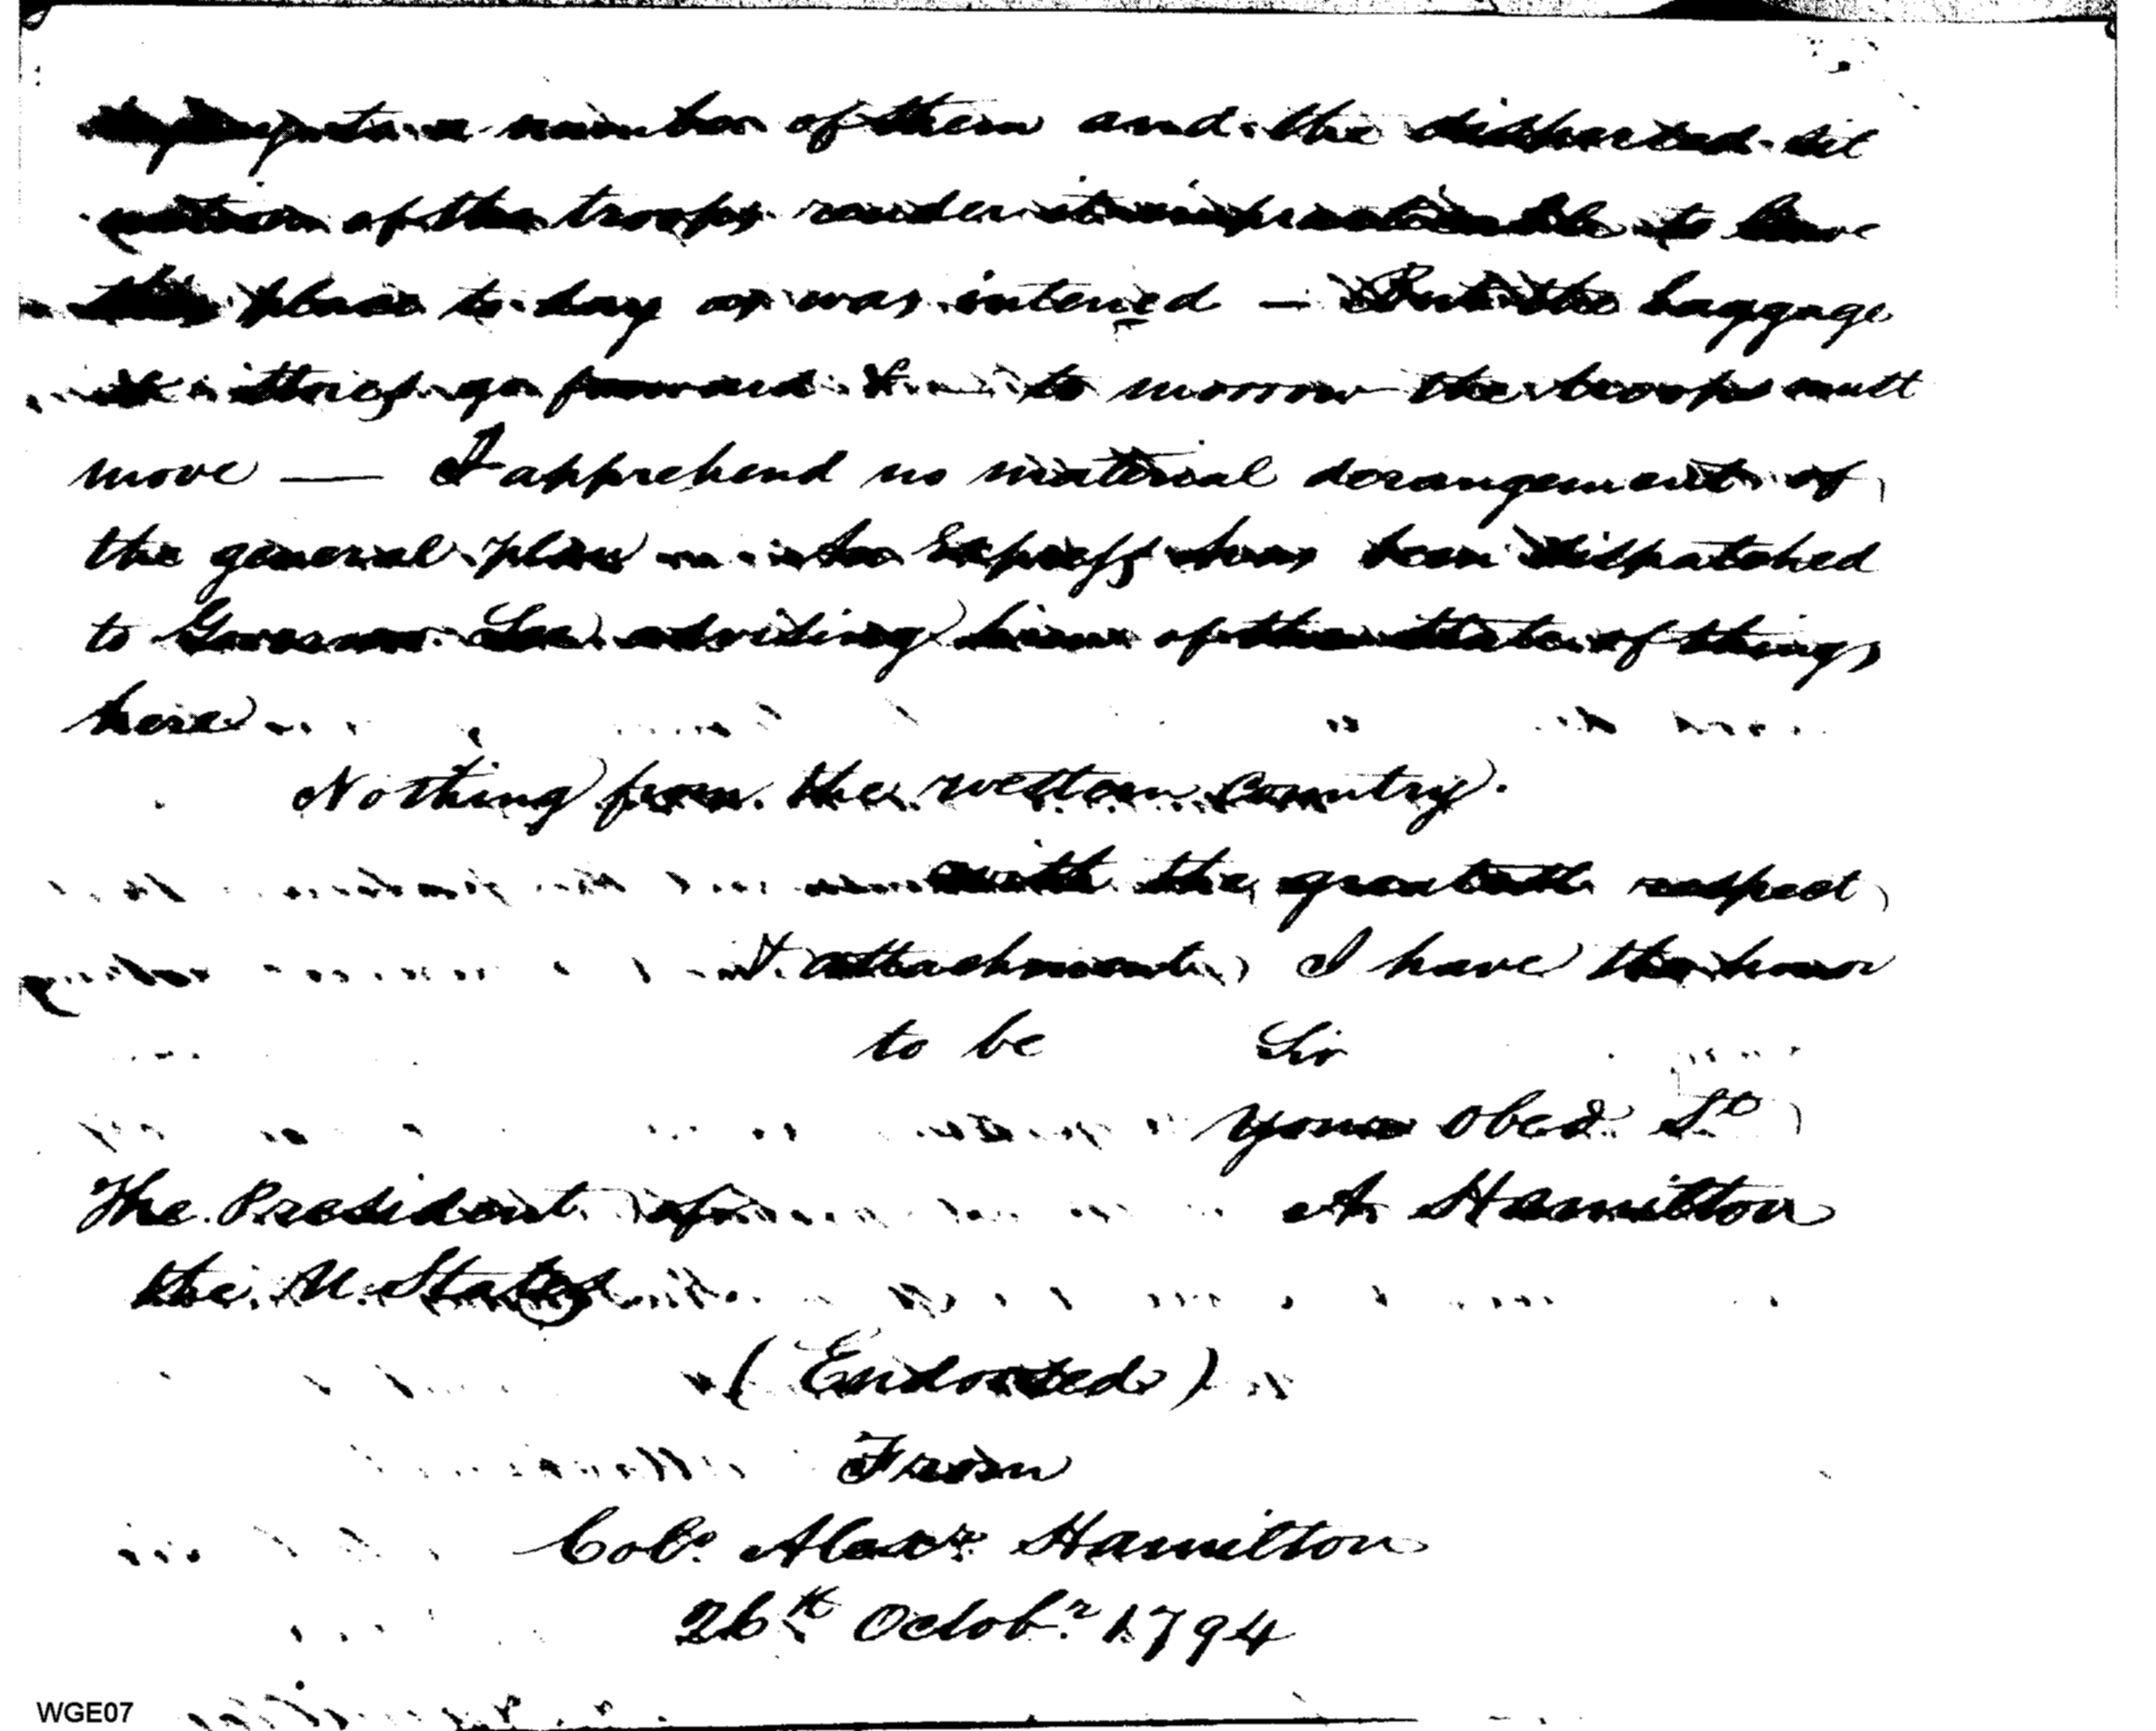 number of them and the dispersed sit
uation of the troops render it impracticable to leave
this place to day as was intened — But the baggage
go forward & to morrow the troops must
move — I apprehend no material derangement of
the general plan Express has been dispatched
to Governor Lee advising him of the state of things
here
Nothing from the western Country.
with the greatest respect
& attachment I have the honor
to be Sir
your Obed. St
The President of A Hamilton
the U. States
(Endorsed)
From
Colo. Alexr. Hamilton
26th Octobr. 1794
WGE07